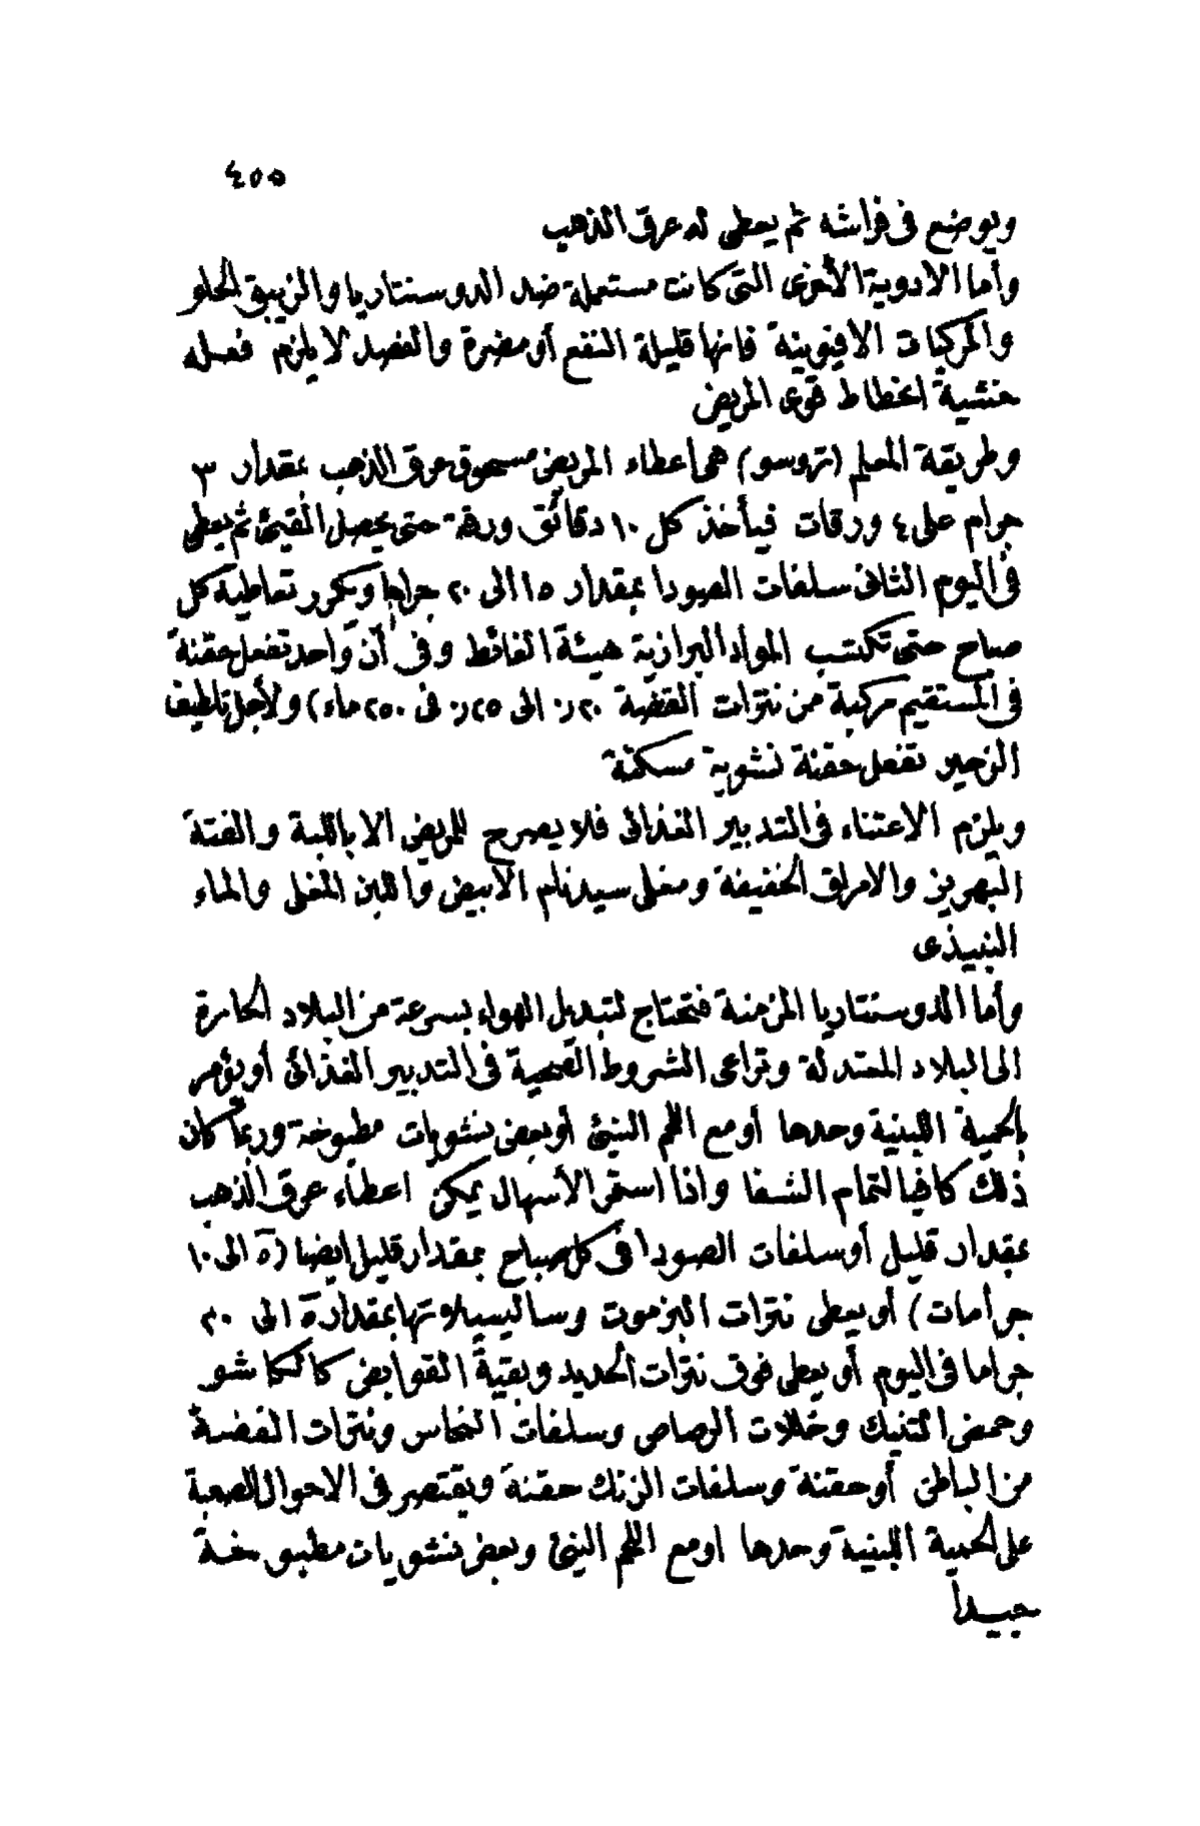 ٤٥٥
ويوضع فى فراشه ثم يعطى له عرق الذهب
وأما الادوية الأخرى التى كانت مستعملة ضد الدوسنتاريا والزيبق الحلو
والمركبات الافيونية فانها قليلة النفع أو مضرة والفصد لا يلزم فعله
خشية انحطاط قوى المريض
وطريقة المعلم (تروسو) هى اعطاء المريض مسحوق عرق الذهب بمقدار ٣
جرام على ٤ ورقات فيأخذ كل ١٠ دقائق ورقة حتى يحصل القيئ ثم يعطى
فى اليوم الثانى سلفات الصودا بمقدار ١٥ الى ٢٠ جراما ويكرر تعاطيه كل
صباح حتى تكتسب المواد البرازية هيئة الغائط وفى آن واحد تفعل حقنة
فى المستقيم مركبة من نترات الفضة ٢٠ر٠ الى ٢٥ر٠ فى ٢٥٠ ماء) ولأجل تلطيف
الزحير تفعل حقنة نشوية مسكنة
ويلزم الاعتناء فى التدبير الغذائى فلا يصرح للمريض الا باللبة والفتة
البهريز والامراق الخفيفة ومغلى سيدنام الابيض واللبن المغلى والماء
النبيذى
وأما الدوسنتاريا المزمنة فتحتاج لتبديل الهواء بسرعة من البلاد الحارة
الى البلاد المعتدلة وتراعى الشروط الصحية فى التدبير الغذائى أو يؤمر
بالحمية اللبنية وحدها أو مع اللحم النيئ أو بعض نشويات مطبوخة وربما كان
ذلك كافيا لتمام الشفا واذا استمر الأسهال يمكن اعطاء عرق الذهب
بمقدار قليل أو سلفات الصودا فى كل صباح بمقدار قليل ايضا (٥ الى ١٠
جرامات) أو يعطى نترات البزموت وساليسيلاتها بمقدار ٥ الى ٢٠
جراما فى اليوم أو يعطى فوق نترات الحديد وبقية القوابض كالكاشو
وحمض التنيك وخلات الرصاص وسلفات النحاس ونترات الفضة
من الباطن أو حقنة وسلفات الزنك حقنة ويقتصر فى الاحوال الصعبة
على الحمية اللبنية وحدها او مع اللحم النيئ وبعض نشويات مطبوخة
جيدا